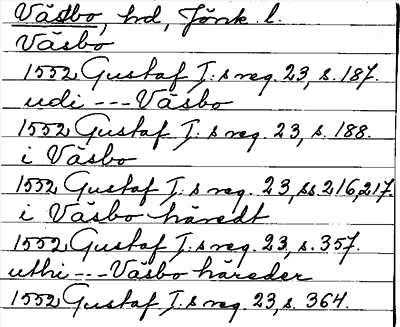 Västbo, hd, Jönk. l.
Väsbo
1552 Gustaf I:s reg. 23, s. 187.
udi --- Väsbo
1552 Gustaf I:s reg. 23, s. 188.
i Väsbo
1552 Gustaf I:s reg. 23, ss. 216, 217.
i Väsbo häredt
1552 Gustaf I:s reg. 23, s. 357.
uthi --- Väsbo häreder
1552 Gustaf I:s reg. 23, s. 364.